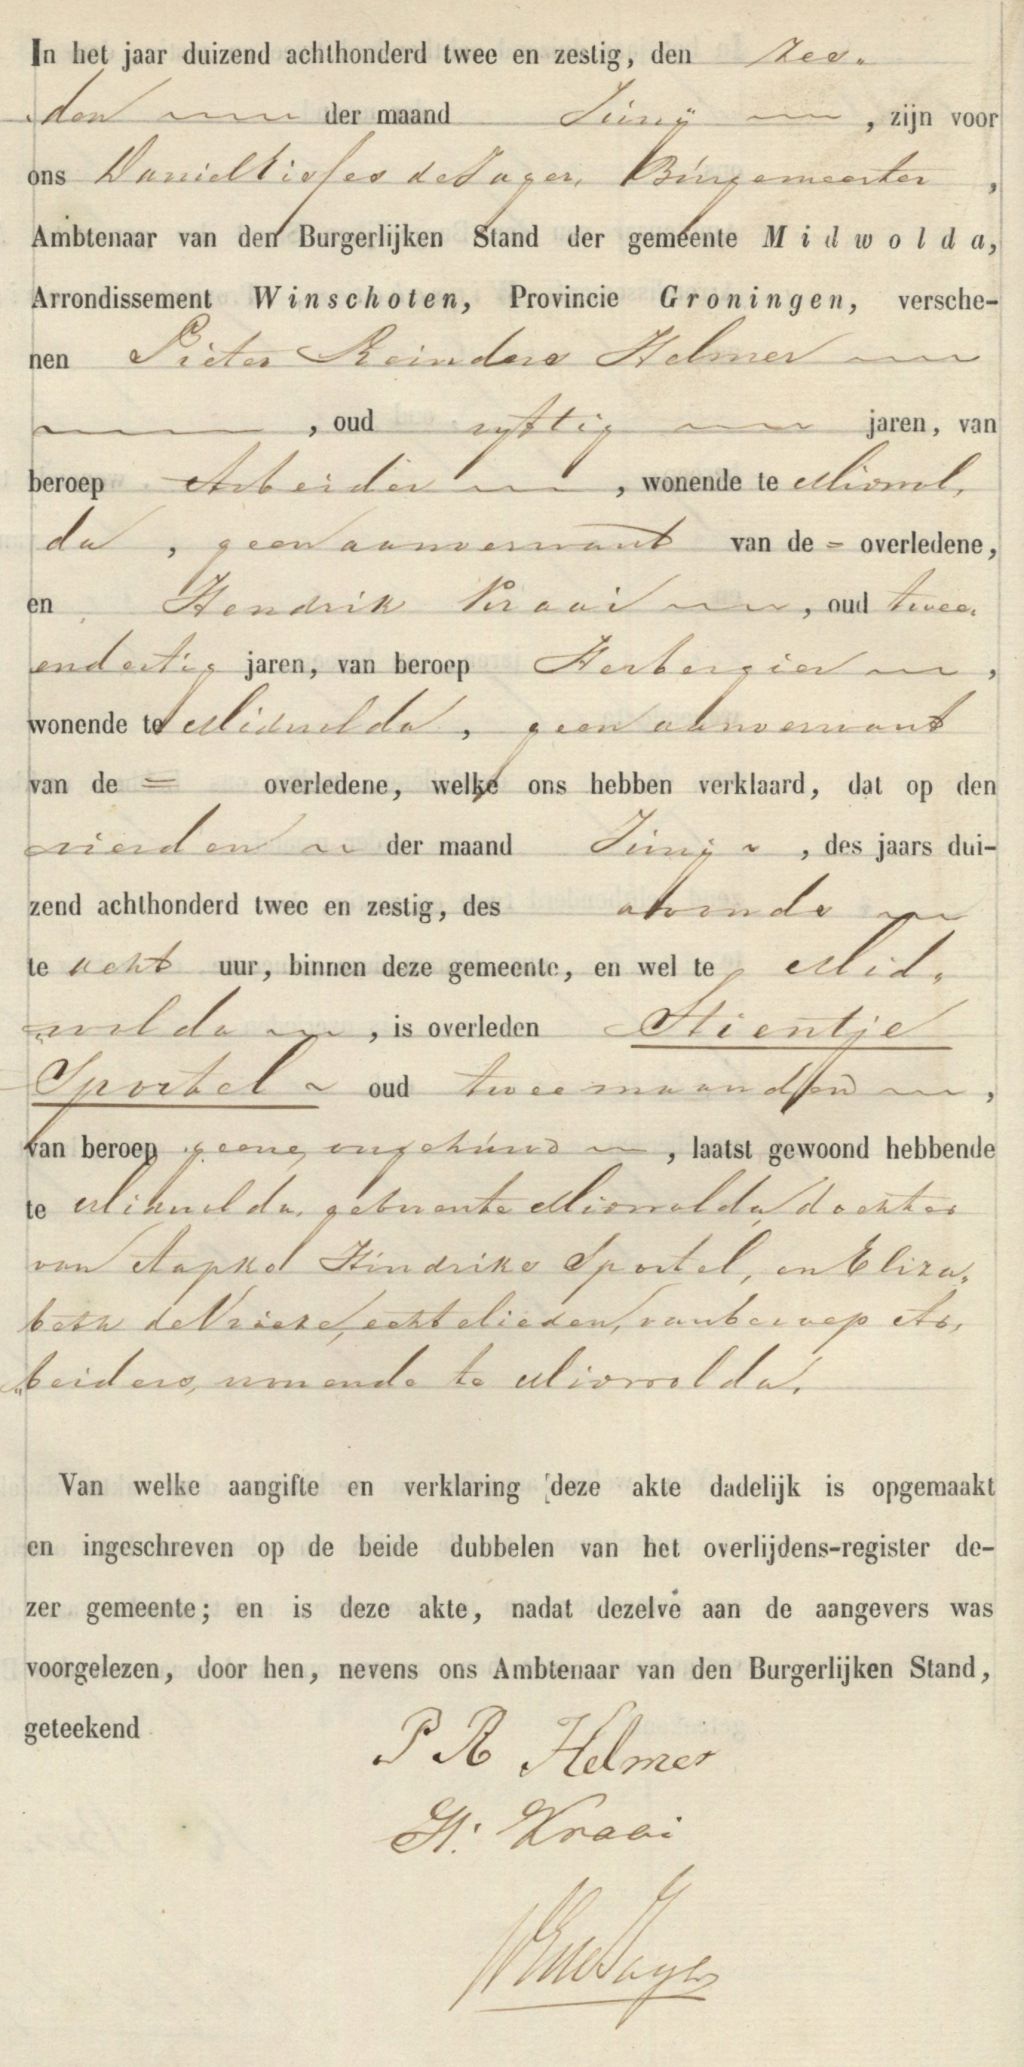 In het jaar duizend achthonderd twee en zestig, den zes-
den der maand Junij, zijn voor
ons Daniel Eisses de Jager, Burgemeester,
Ambtenaar van den Burgerlijken Stand der gemeente Midwolda,
Arrondissement Winschoten, Provincie Groningen, versche-
nen Pieter Reinders Helmer
, oud vyftig jaren, van
beroep Arbeider, wonende te Midwol-
da, geen aanverwant van de = overledene,
en Hendrik Kraai, oud twee
endertig jaren, van beroep Herbergier,
wonende te Midwolda, geen aanverwant
van de = overledene, welke ons hebben verklaard, dat op den
vierden der maand Junij, des jaars dui-
zend achthonderd twee en zestig, des avonds
te acht uur, binnen deze gemeente, en wel te Mid-
wolda, is overleden Stientje
Sportel oud twee maanden,
van beroep geene, ongehuwd, laatst gewoond hebbende
te Midwolda, gemeente Midwolda, dochter
van Aapko Hindriks Sportel, en Eliza-
beth de Vrieze, echtelieden, van beroep Ar-
beiders, wonende te Midwolda.
Van welke aangifte en verklaring deze akte dadelijk is opgemaakt
en ingeschreven op de beide dubbelen van het overlijdens-register de-
zer gemeente; en is deze akte, nadat dezelve aan de aangevers was
voorgelezen, door hen, nevens ons Ambtenaar van den Burgerlijken Stand,
geteekend
P R Helmer
H. Kraai
DE de Jager